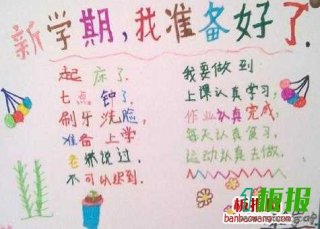 新学期,我准备好了.
起床了.
七点钟了.
刷牙洗脸,
准备上学
老师说过,
不可以迟到.
我要做到:
上课认真学习,
作业认真完成,
每天认真复习,
运动认真去做.
板报
www.banbaowang.com